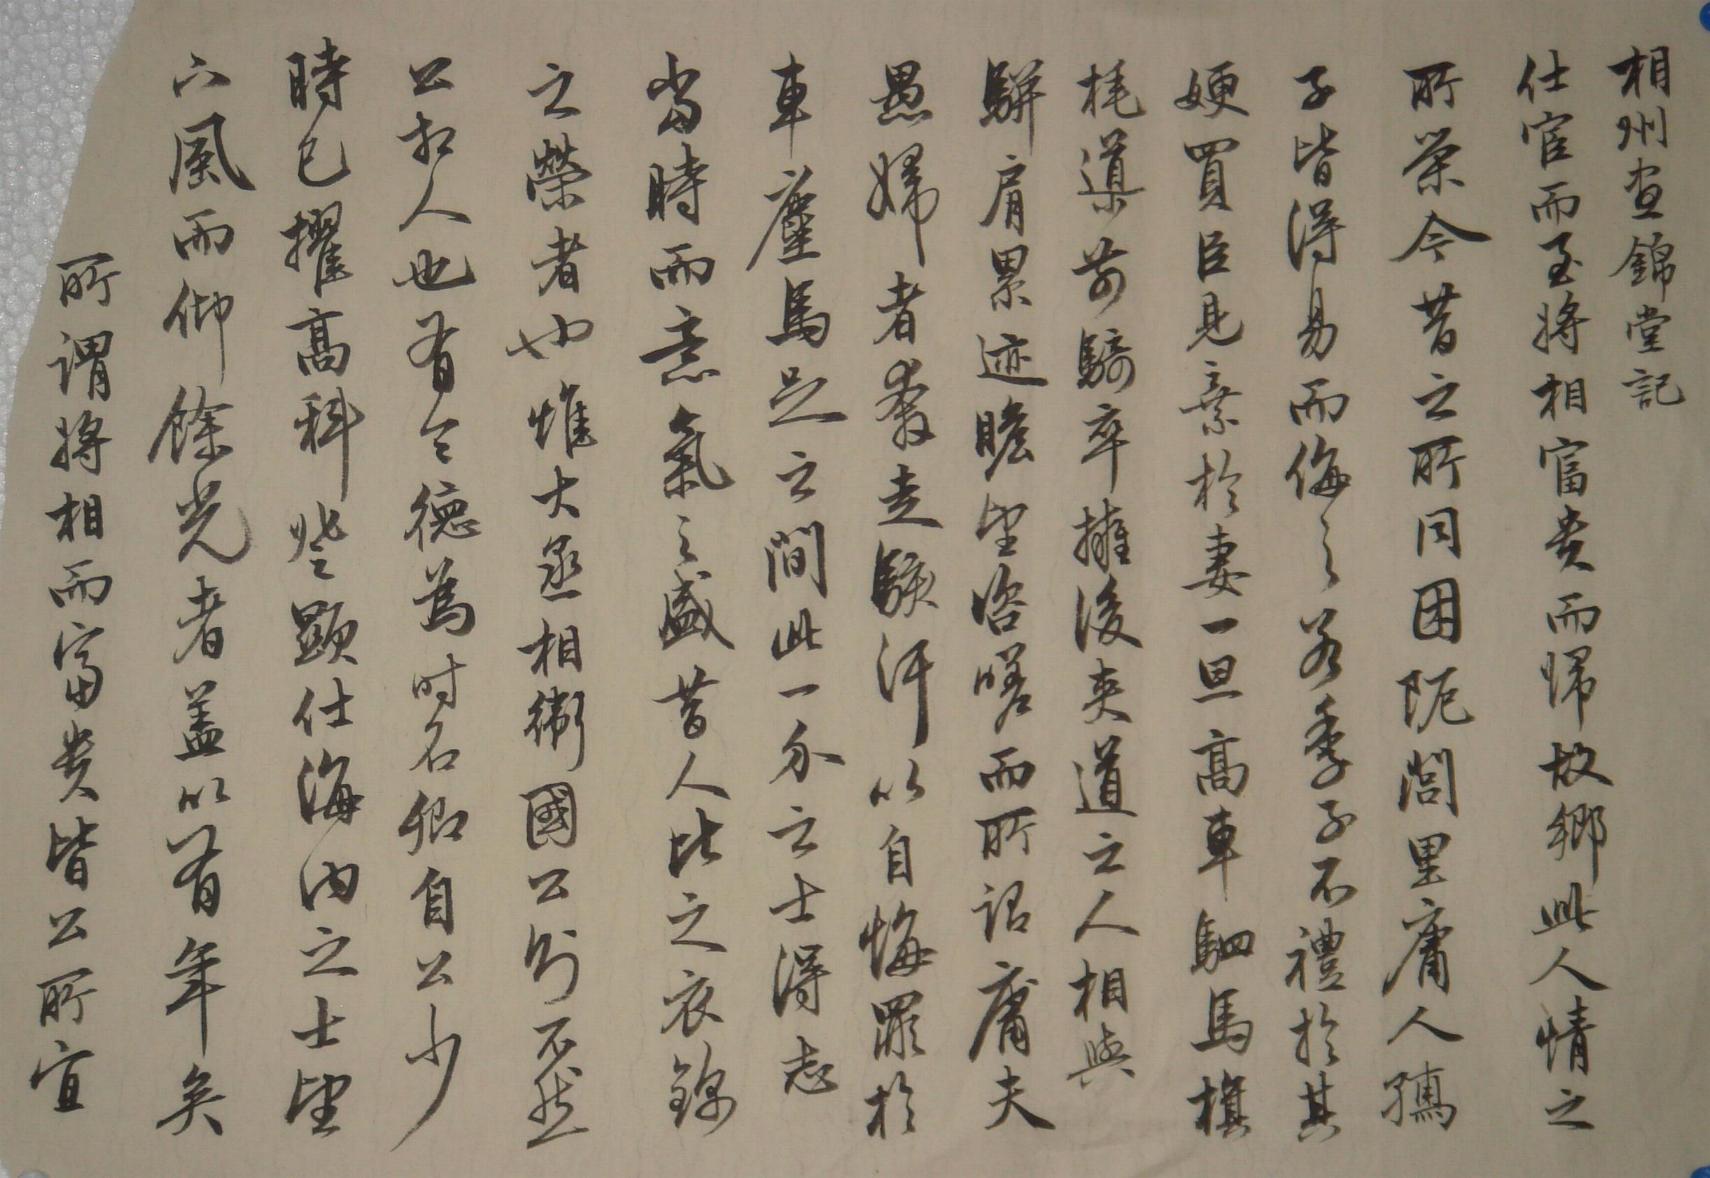 相州昼錦堂記
仕宦而至將相富贵而歸故鄉此人情之
所榮今昔之所同困阨閭里庸人孺
子皆得易而侮之若季子不禮於其
㛐買臣見棄於妻一旦高車駟馬旗
旄導前騎卒擁後夾道之人相與
駢肩累迹瞻望咨嗟而所謂庸夫
愚婦者奔走駭汗以自悔罪於
車塵馬足之間此一介之士得志
當時而意氣之盛昔人比之衣錦
之榮者也惟大丞相衛國公則不然
公相人也有令德為时名卿自公少
時已擢高科登顯仕海内之士望
下風而仰餘光者盖以有年矣
所謂將相而富贵皆公所宜